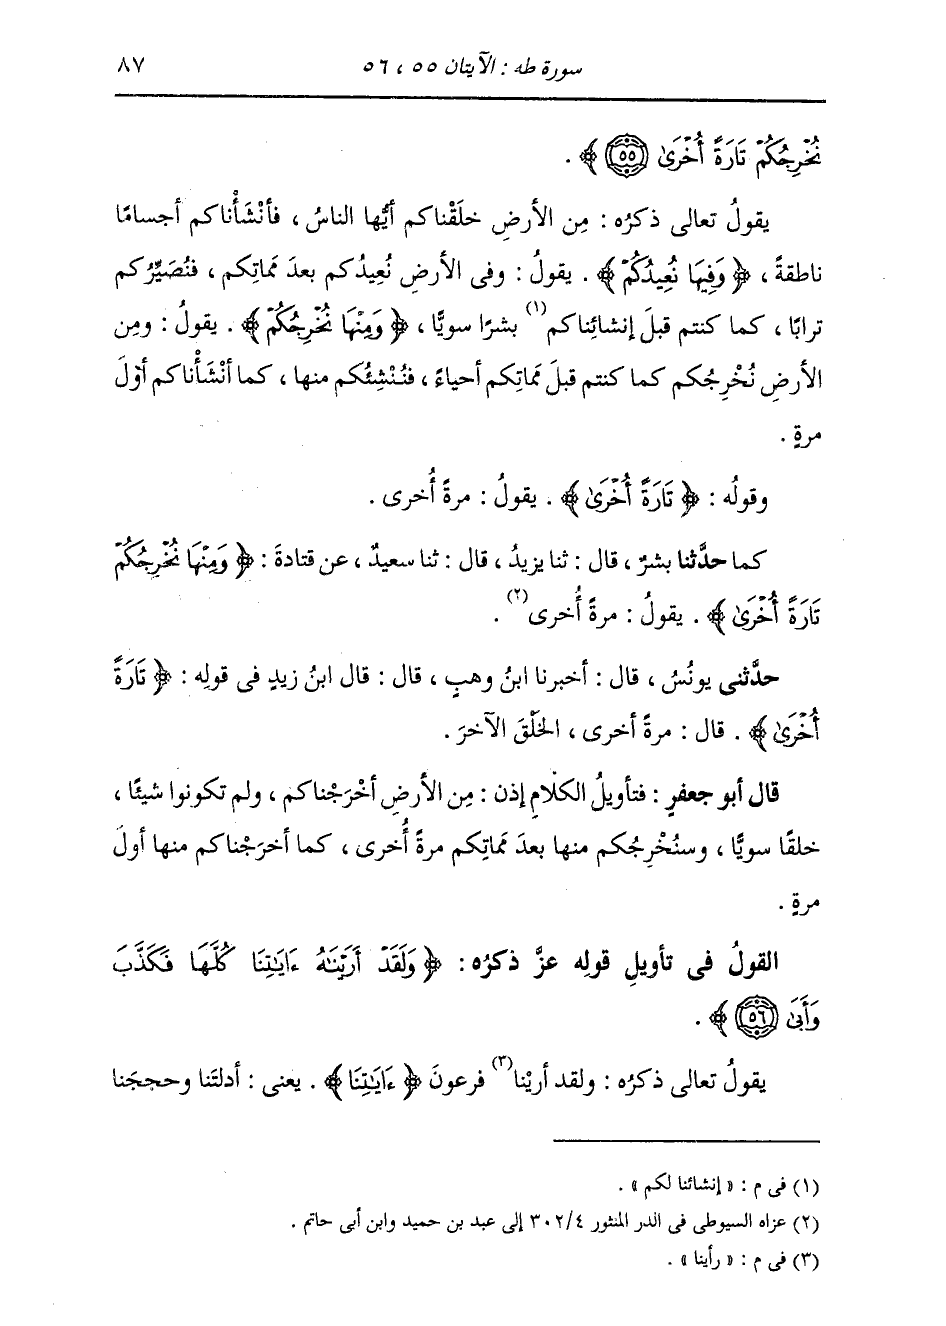 سورة طه : الآيتان ٥٥ ، ٥٦ ٨٧
نُخْرِجُكُمْ تَارَةً أُخْرَىٰ ﴿٥٥﴾ ﴾ .
يقولُ تعالى ذكرُه : مِن الأرضِ خلَقْناكم أيُّها الناسُ ، فأنْشَأْناكم أجسامًا
ناطقةً ، ﴿ وَفِيهَا نُعِيدُكُمْ ﴾ . يقولُ : وفى الأرضِ نُعِيدُكم بعدَ مماتِكم ، فنُصَيِّرُكم
ترابًا ، كما كنتم قبلَ إنشائِناكم(١) بشرًا سويًّا ، ﴿ وَمِنْهَا نُخْرِجُكُمْ ﴾ . يقولُ : ومِن
الأرضِ نُخْرِجُكم كما كنتم قبلَ مماتِكم أحياءً ، فنُنْشِئُكم منها ، كما أنْشَأْناكم أوّلَ
مرةٍ .
وقولُه : ﴿ تَارَةً أُخْرَىٰ ﴾ . يقولُ : مرةً أُخرى .
كما حدَّثنا بشرٌ ، قال : ثنا يزيدُ ، قال : ثنا سعيدٌ ، عن قتادةَ : ﴿ وَمِنْهَا نُخْرِجُكُمْ
تَارَةً أُخْرَىٰ ﴾ . يقولُ : مرةً أُخرى(٢) .
حدَّثنى يونُسُ ، قال : أخبرنا ابنُ وهبٍ ، قال : قال ابنُ زيدٍ فى قولِه : ﴿ تَارَةً
أُخْرَىٰ ﴾ . قال : مرةً أخرى ، الخَلْقَ الآخرَ .
قال أبو جعفرٍ : فتأويلُ الكلامِ إذن : مِن الأرضِ أخْرَجْناكم ، ولم تكونوا شيئًا ،
خلقًا سويًّا ، وسنُخْرِجُكم منها بعدَ مماتِكم مرةً أُخرى ، كما أخرَجْناكم منها أولَ
مرةٍ .
القولُ فى تأويلِ قولِه عزَّ ذكرُه : ﴿ وَلَقَدْ أَرَيْنَٰهُ ءَايَٰتِنَا كُلَّهَا فَكَذَّبَ
وَأَبَىٰ ﴿٥٦﴾ ﴾ .
يقولُ تعالى ذكرُه : ولقد أريْنا(٣) فرعونَ ﴿ ءَايَٰتِنَا ﴾ . يعنى : أدلتَنا وحججَنا
(١) فى م : « إنشائنا لكم » .
(٢) عزاه السيوطى فى الدر المنثور ٣٠٢/٤ إلى عبد بن حميد وابن أبى حاتم .
(٣) فى م : « رأينا » .